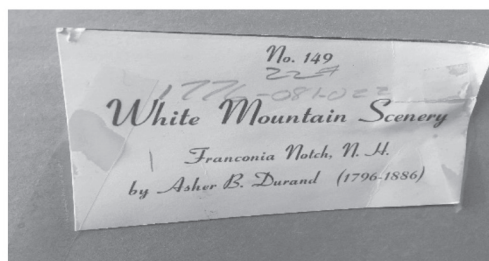 No. 149
White Mountain Scenery
Franconia Notch, N. H.
by Asher B. Durand (1796-1886)